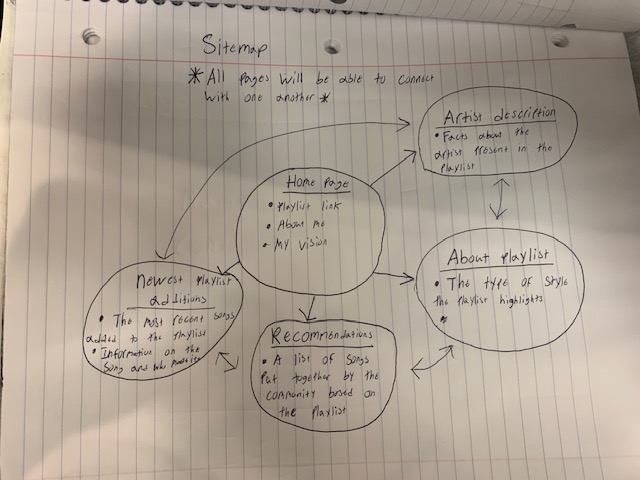 Sitemap
*All pages will be able to connect
with one another*
Artist description
• Facts about the
artist present in the
playlist
Home page
• Playlist link
• About me
• My vision
About playlist
• The type of style
the playlist highlights
•
Newest playlist
additions
• The most recent songs
added to the playlist
• Information on the
song and who made it
Recommendations
• A list of songs
put together by the
community based on
the playlist